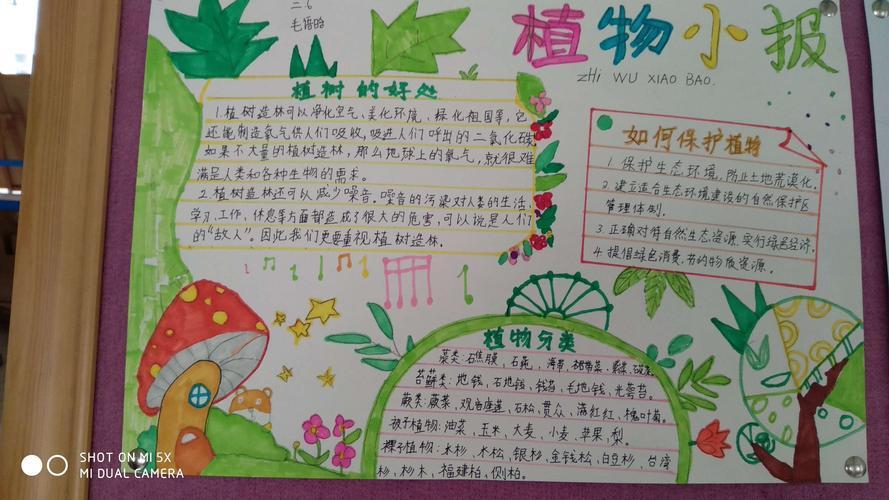 二.6
植物小报
ZHI WU XIAO BAO.
植树的好处
1.植树造林可以净化空气、美化环境、绿化祖国等,它
还能制造氧气供人们吸收,吸进人们呼出的二氧化碳,
如果不大量的植树造林,那么地球上的氧气,就很难
满足人类和各种生物的需求。
2.植树造林还可以减少噪音。噪音的污染对人类的生活、
学习、工作、休息等方面都造成了很大的危害,可以说是人们
的“敌人”。因此我们更要重视植树造林。
如何保护植物
1.保护生态环境,防止土地荒漠化.
2.建立适合生态环境建设的自然保护区
管理体制.
3.正确对待自然生态资源.实行绿色经济.
4.提倡绿色消费.节约物质资源.
植物分类
藻类:石莼、海带、紫菜、
苔藓类:地钱、石地钱、钱苔、毛地钱、光萼苔。
蕨类:蕨菜、观音座莲、石松、贯众、满江红、槐叶萍。
被子植物:油菜、玉米、大麦、小麦、苹果、梨。
裸子植物:水杉、水松、银杉、金钱松、白豆杉、台湾
杉、杉木、福建柏、侧柏。
SHOT ON MI 5X
MI DUAL CAMERA